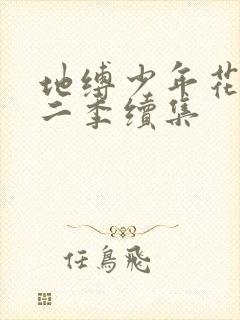 地缚少年花
二季续集
任鳥飛